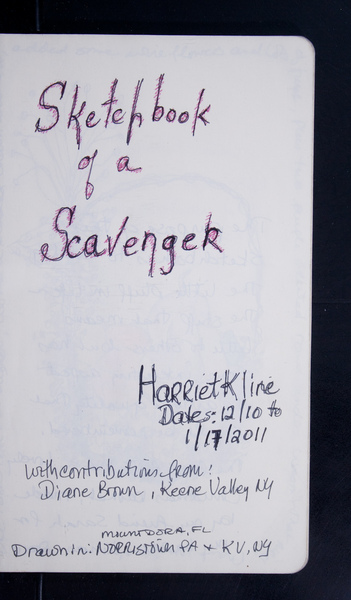 Sketchbook
of a
Scavenger
Harriet Kline
Dates: 12/10 to
1/17/2011
with contributions from:
Diane Brown, Keene Valley NY
MOUNT DORA, FL
Drawn in: NORRISTOWN PA + KV, NY